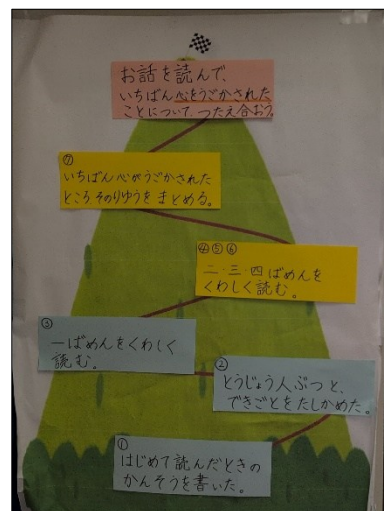 お話を読んで、
いちばん心をうごかされた
ことについて、つたえ合おう。
⑦
いちばん心がうごかされた
ところ そのりゆうを まとめる。
④⑤⑥
二・三・四ばめんを
くわしく読む。
③
一ばめんをくわしく
読む。
②
とうじょう人ぶつと、
できごとをたしかめた。
①
はじめて読んだときの
かんそうを書いた。